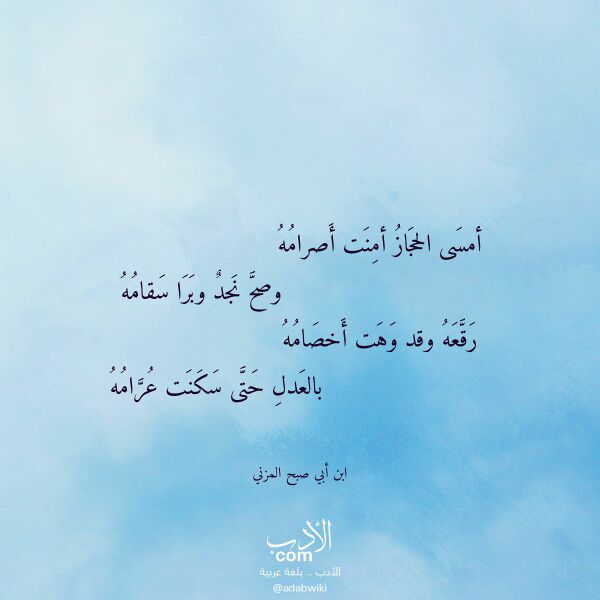 أمسَى الحجَازُ أمِنَت أَصرامُهُ
وصحَّ نَجدٌ وبَرَا سَقامُهُ
رَقَّعَهُ وقد وَهَت أَخصَامُهُ
بالعَدلِ حَتَّى سَكَنَت عُرَّامُهُ
ابن أبي صبح المزني
الأدب
com
الأدب .. بلغة عربية
@adabwiki